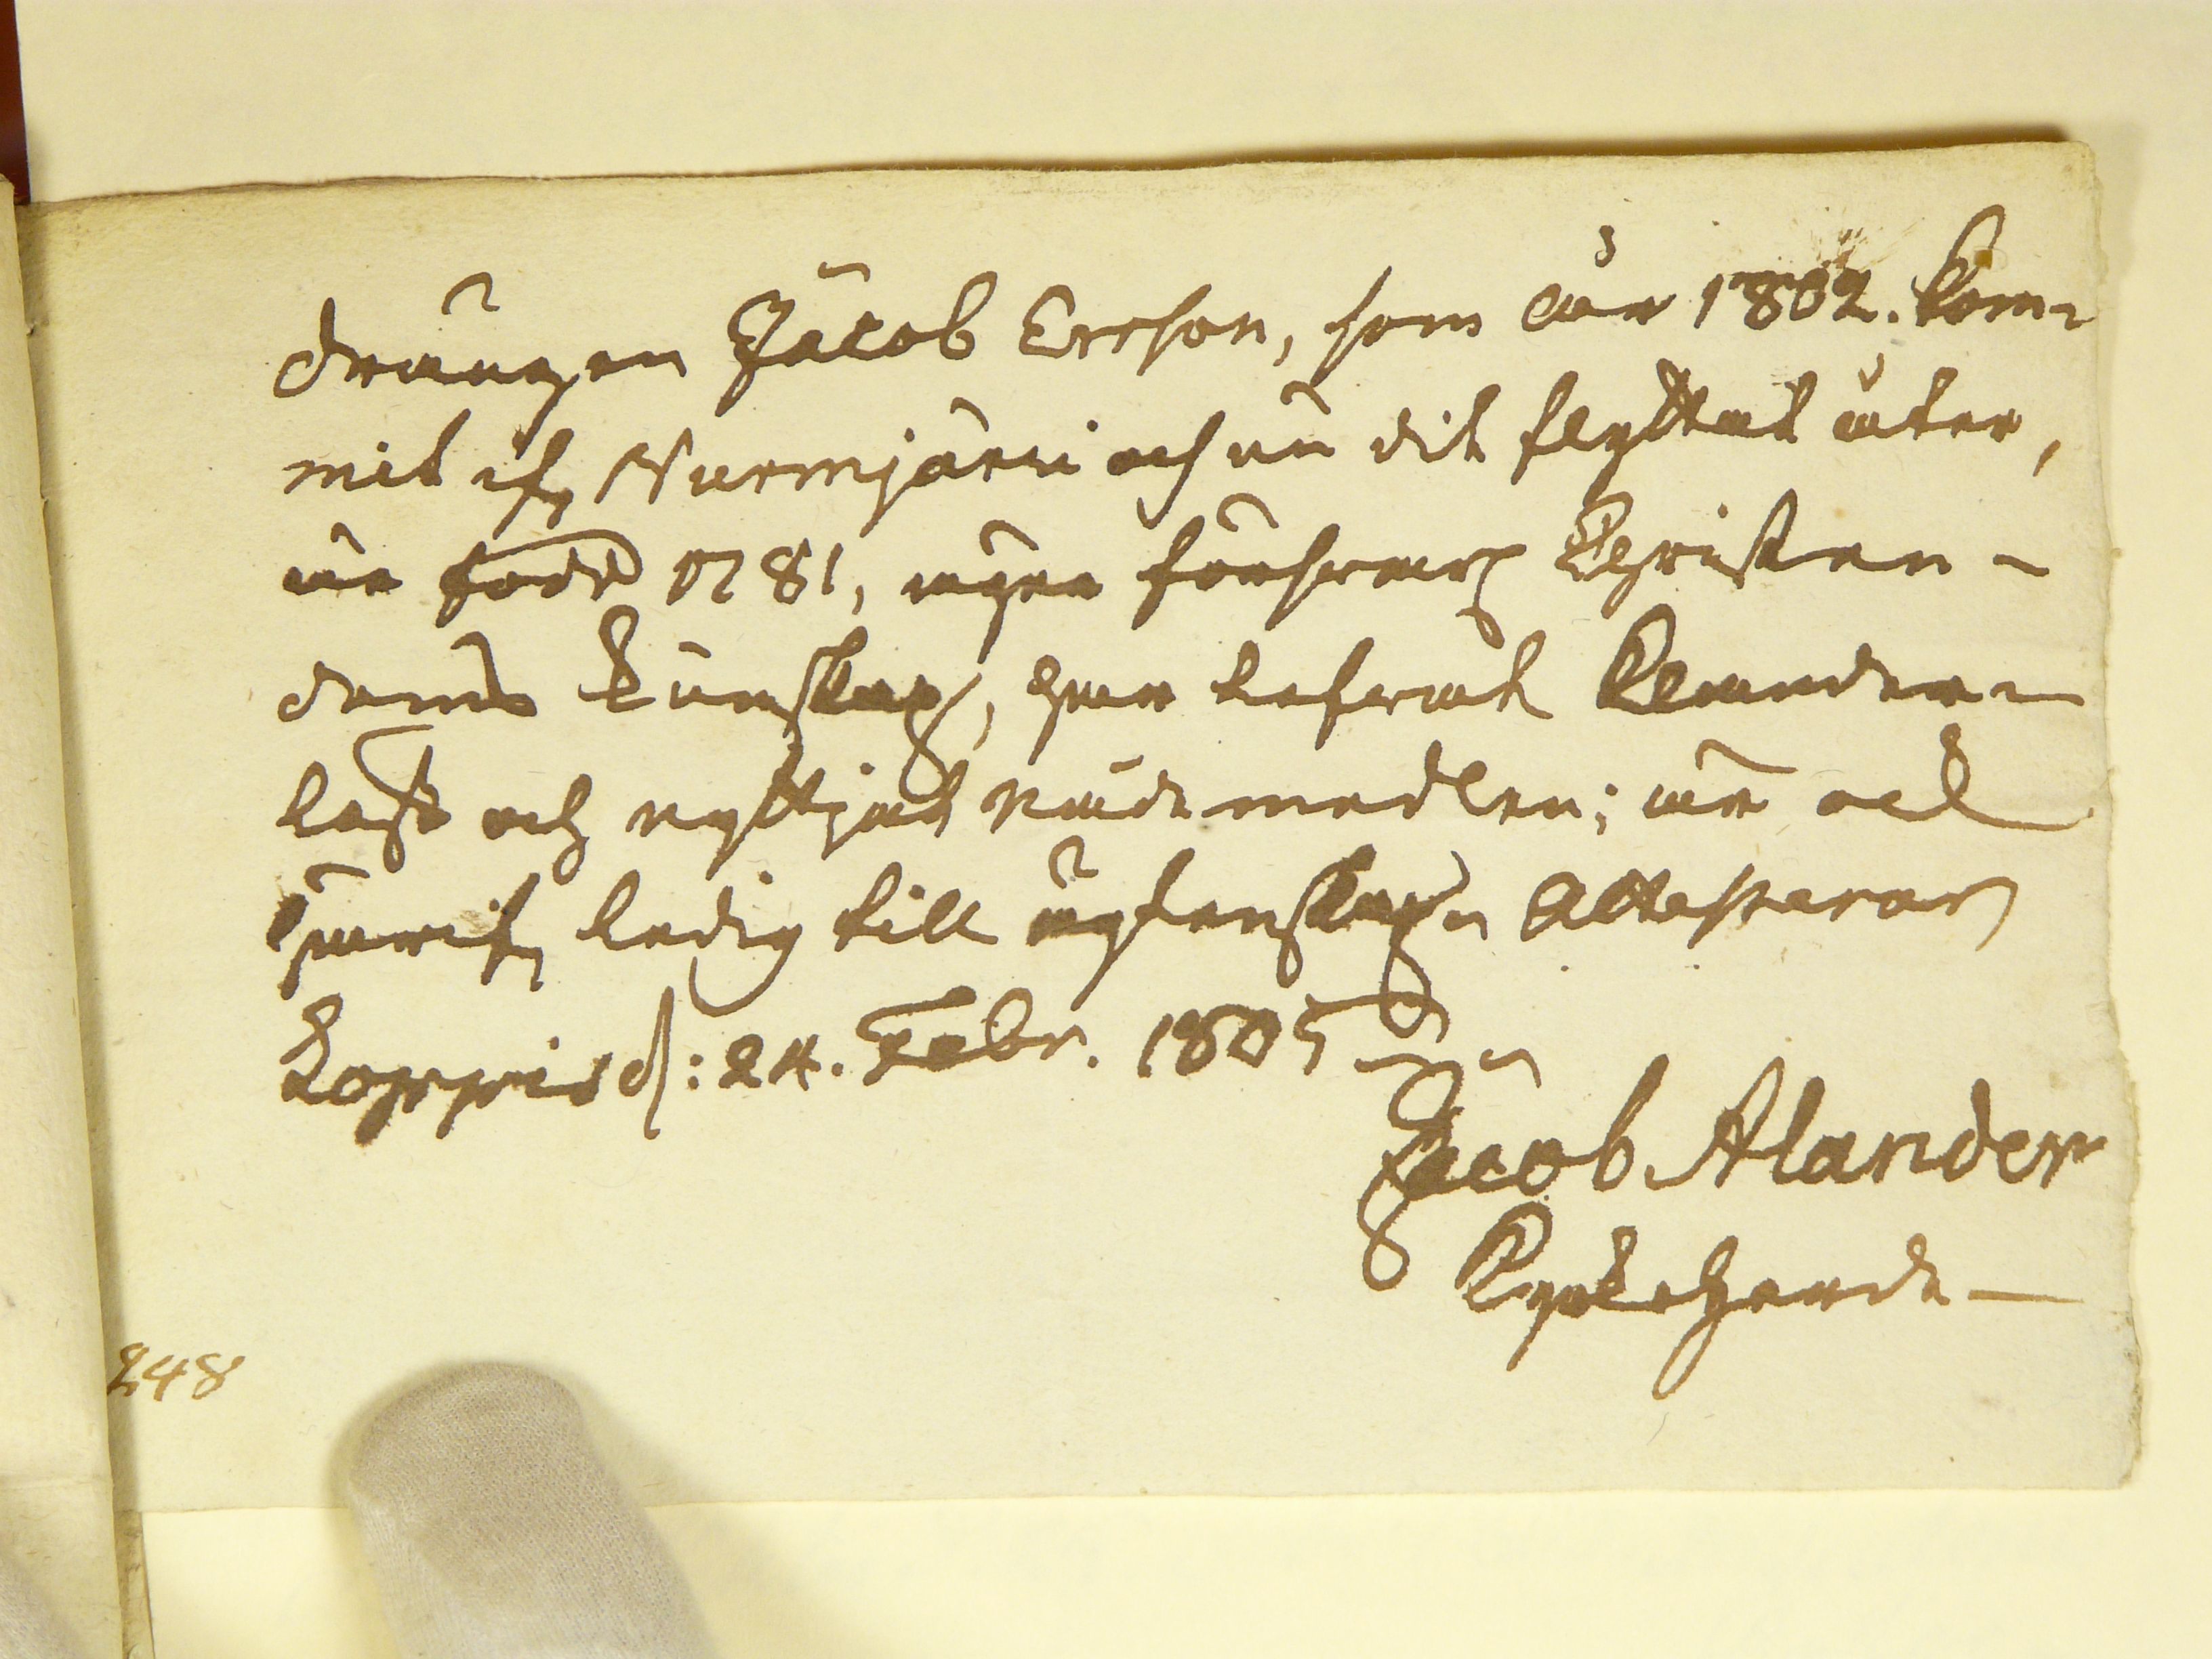 drängen Jacob Ersson, som år 1802. kom-
mit ifr. Nurmjärvi och nu dit flyttat åter,
är född 1781, äger försvarl. Christen-
doms kunskap, har lefwat klander-
löst och nyttjat nådemedlen; är ock
härifr. ledig till ägtenskap. Attesterar
Loppis d: 24. Febr. 1805
Jacob Alander
Kyrkoherde
248